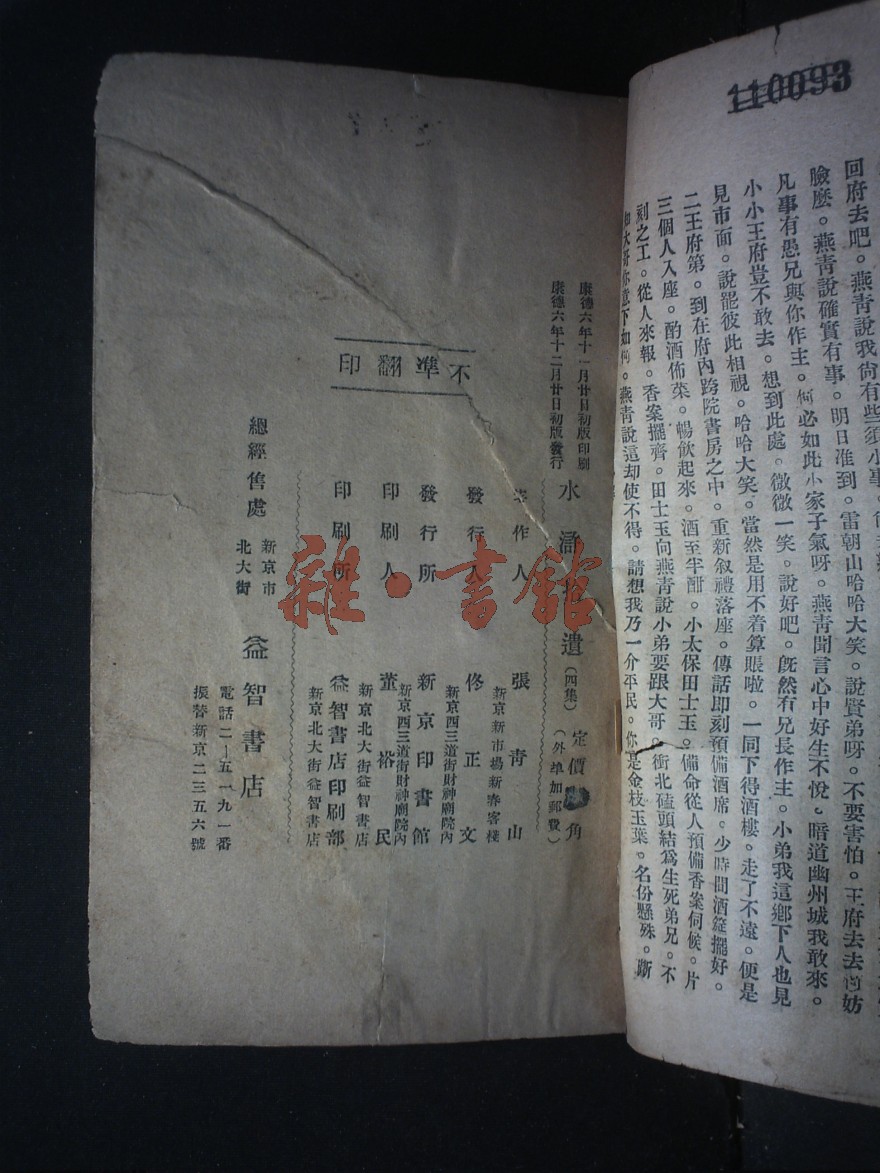 110093
回府去吧。燕靑說我尙有些須小事。
臉麼。燕靑說確實有事。明日准到。雷朝山哈哈大笑。說賢弟呀。不要害怕。王府去去尙妨
凡事有愚兄與你作主。何必如此小家子氣呀。燕靑聞言心中好生不悅。暗道幽州城我敢來。
小小王府豈不敢去。想到此處。微微一笑。說好吧。旣然有兄長作主。小弟我這鄉下人也見
見市面。說罷彼此相視。哈哈大笑。當然是用不着算賬啦。一同下得酒樓。走了不遠。便是
二王府第。到在府內跨院書房之中。重新叙禮落座。傳話即刻預備酒席。少時間酒筵擺好。
三個人入座。酌酒佈菜。暢飮起來。酒至半酣。小太保田士玉。備命從人預備香案伺候。片
刻之工。從人來報。香案擺齊。田士玉向燕靑說小弟要跟大哥。衝北磕頭結爲生死弟兄。不
知大哥你意下如何。燕靑說這却使不得。請想我乃一介平民。你是金枝玉葉。名份懸殊。斷
康德六年十一月廿日初版印刷
康德六年十二月廿日初版發行
水滸 遺(四集) 定價 角
(外埠加郵費)
著作人 張靑山
新京新市場新春客棧
發行人 佟正文
新京西三道街財神廟院內
發行所 新京印書館
新京西三道街財神廟院內
印刷人 董裕民
新京北大街益智書店
印刷所 益智書店印刷部
新京北大街益智書店
不準翻印
總經售處 新京市北大街 益智書店
電話二—五一九一番
振替新京二三五六號
雜·書館